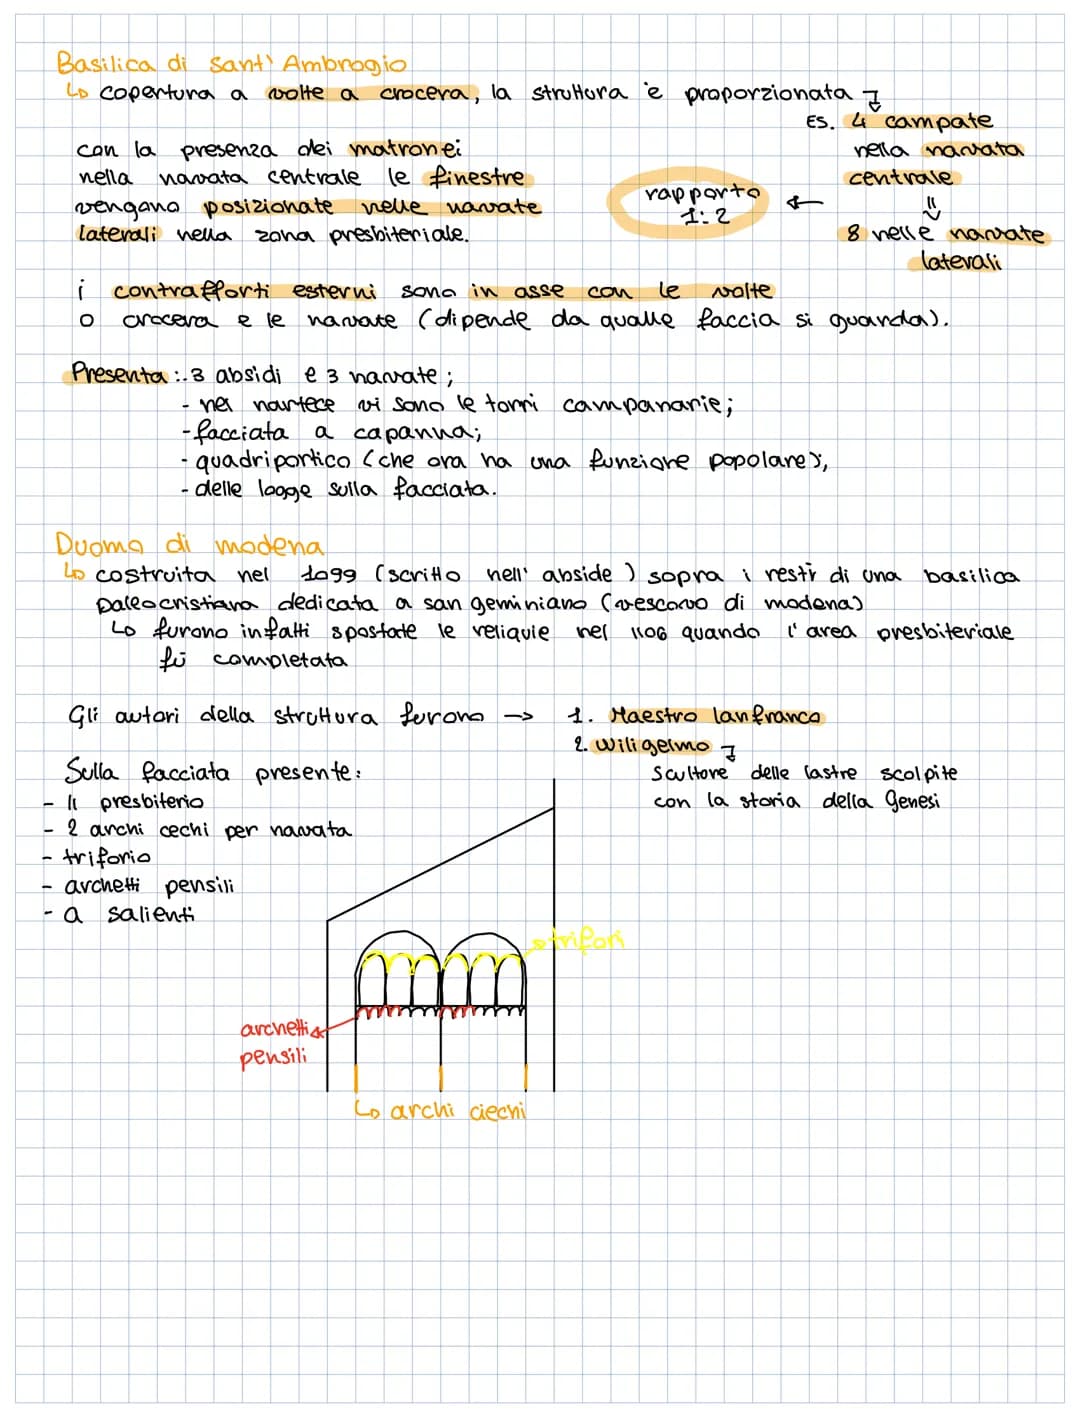 Basilica di Sant' Ambrogio
↳ copertura a volte a crocera, la struttura è proporzionata
ES. 4 campate
nella navata
centrale
8 nelle navate
laterali
rapporto
1:2
con la presenza dei matronei
nella navata centrale le finestre
vengono posizionate nelle navate
laterali nella zona presbiteriale.
i contrafforti esterni sono in asse con le volte
o crocera e le navate (dipende da qualle faccia si guarda).
Presenta :. 3 absidi e 3 navate;
- nel nartece vi sono le torri campanarie;
- facciata a capanna;
- quadriportico (che ora ha una funzione popolare),
- delle logge sulla facciata.
Duomo di modena
↳ costruita nel 1099 (scritto nell' abside) sopra i resti di una basilica
paleocristiana dedicata a san geminiano (vescovo di modena)
↳ furono infatti spostate le reliquie nel 1106 quando l'area presbiteriale
fù completata
Gli autori della struttura furono → 1. Maestro lanfranco
2. Wiligelmo
Scultore delle lastre scolpite
con la storia della Genesi
Sulla facciata presente:
- Il presbiterio
- 2 archi cechi per navata
- triforio
- archetti pensili
- a salienti
trifori
archetti
pensili
↳ archi ciechi